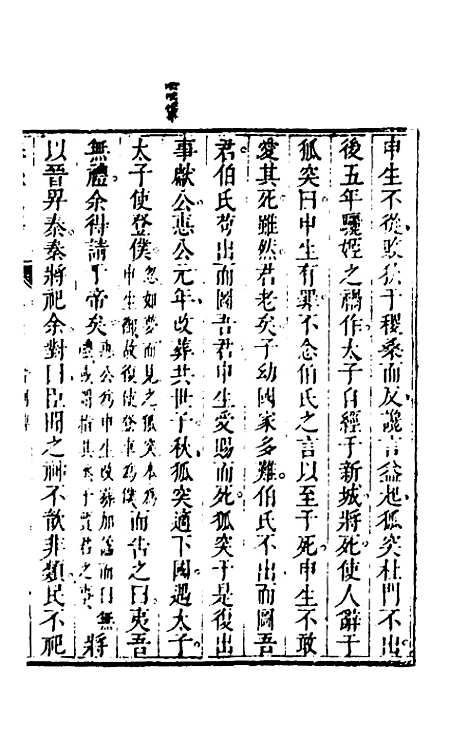 申生不從敗狄于稷桑而反讒言益起狐突杜門不出
後五年驪姬之禍作太子自經于新城將死使人辭于
狐突曰申生有罪不念伯氏之言以至于死申生不敢
愛其死雖然君老矣子幼國家多難伯氏不出而圖吾
君伯氏苟出而圖吾君申生受賜而死狐突于是復出
事獻公惠公元年改葬共世子秋狐突適下國遇太子
太子使登僕忽如夢而見之狐突本爲申生御故復使登車爲僕而告之曰夷吾
無禮余得請于帝矣將
以晉畀秦秦將祀余對曰臣聞之神不歆非類民不祀